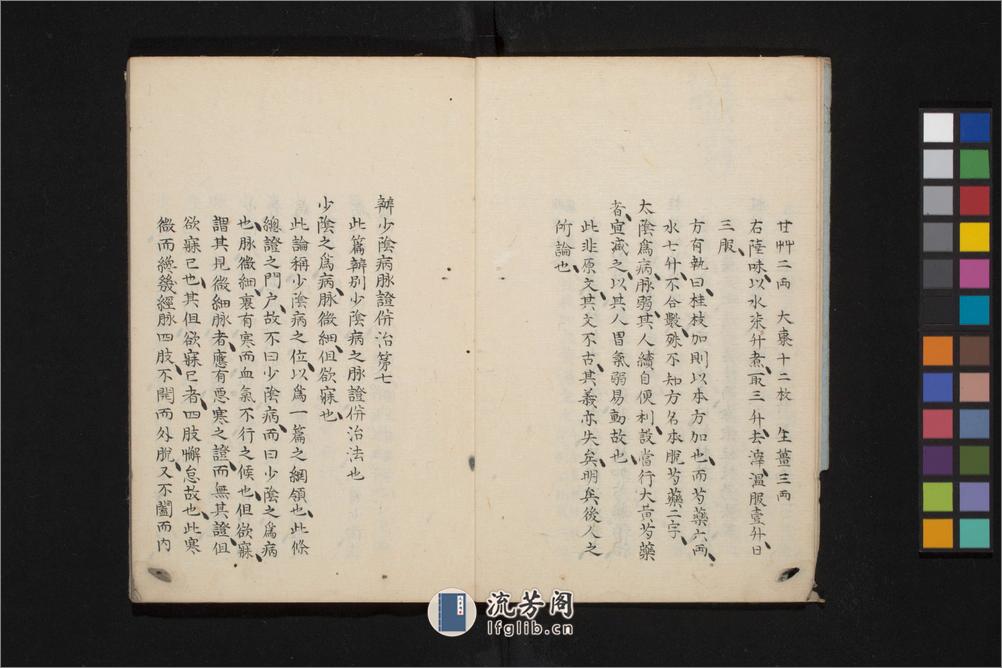 甘艸二兩　大棗十二枚　生薑三兩
右陸味以水柒升煮取三升去滓温服壹升日
三服
方有執曰桂枝加則以本方加也而芍藥六兩
水七升不合數殊不知方名本脫芍藥二字
太陰爲病脉弱其人續自便利設當行大黄芍藥
者宜減之以其人胃氣弱易動故也
此非原文其文不古其義亦失矣明矣後人之
所論也
辨少陰病脉證併治第七
此篇辨别少陰病之脉證併治法也
少陰之爲病脉微細但欲寐也
此論稱少陰病之位以爲一篇之綱領也此條
總證之門戸故不曰少陰病而曰少陰之爲病
也脉微細裏有寒而血氣不行之候也但欲寐
謂其見微細脉者應有悪寒之證而無其證但
欲寐已也其但欲寐已者四肢懈怠故也此寒
微而纔發經脉四肢不開而外脫又不闔而内
流芳阁
lfglib.cn